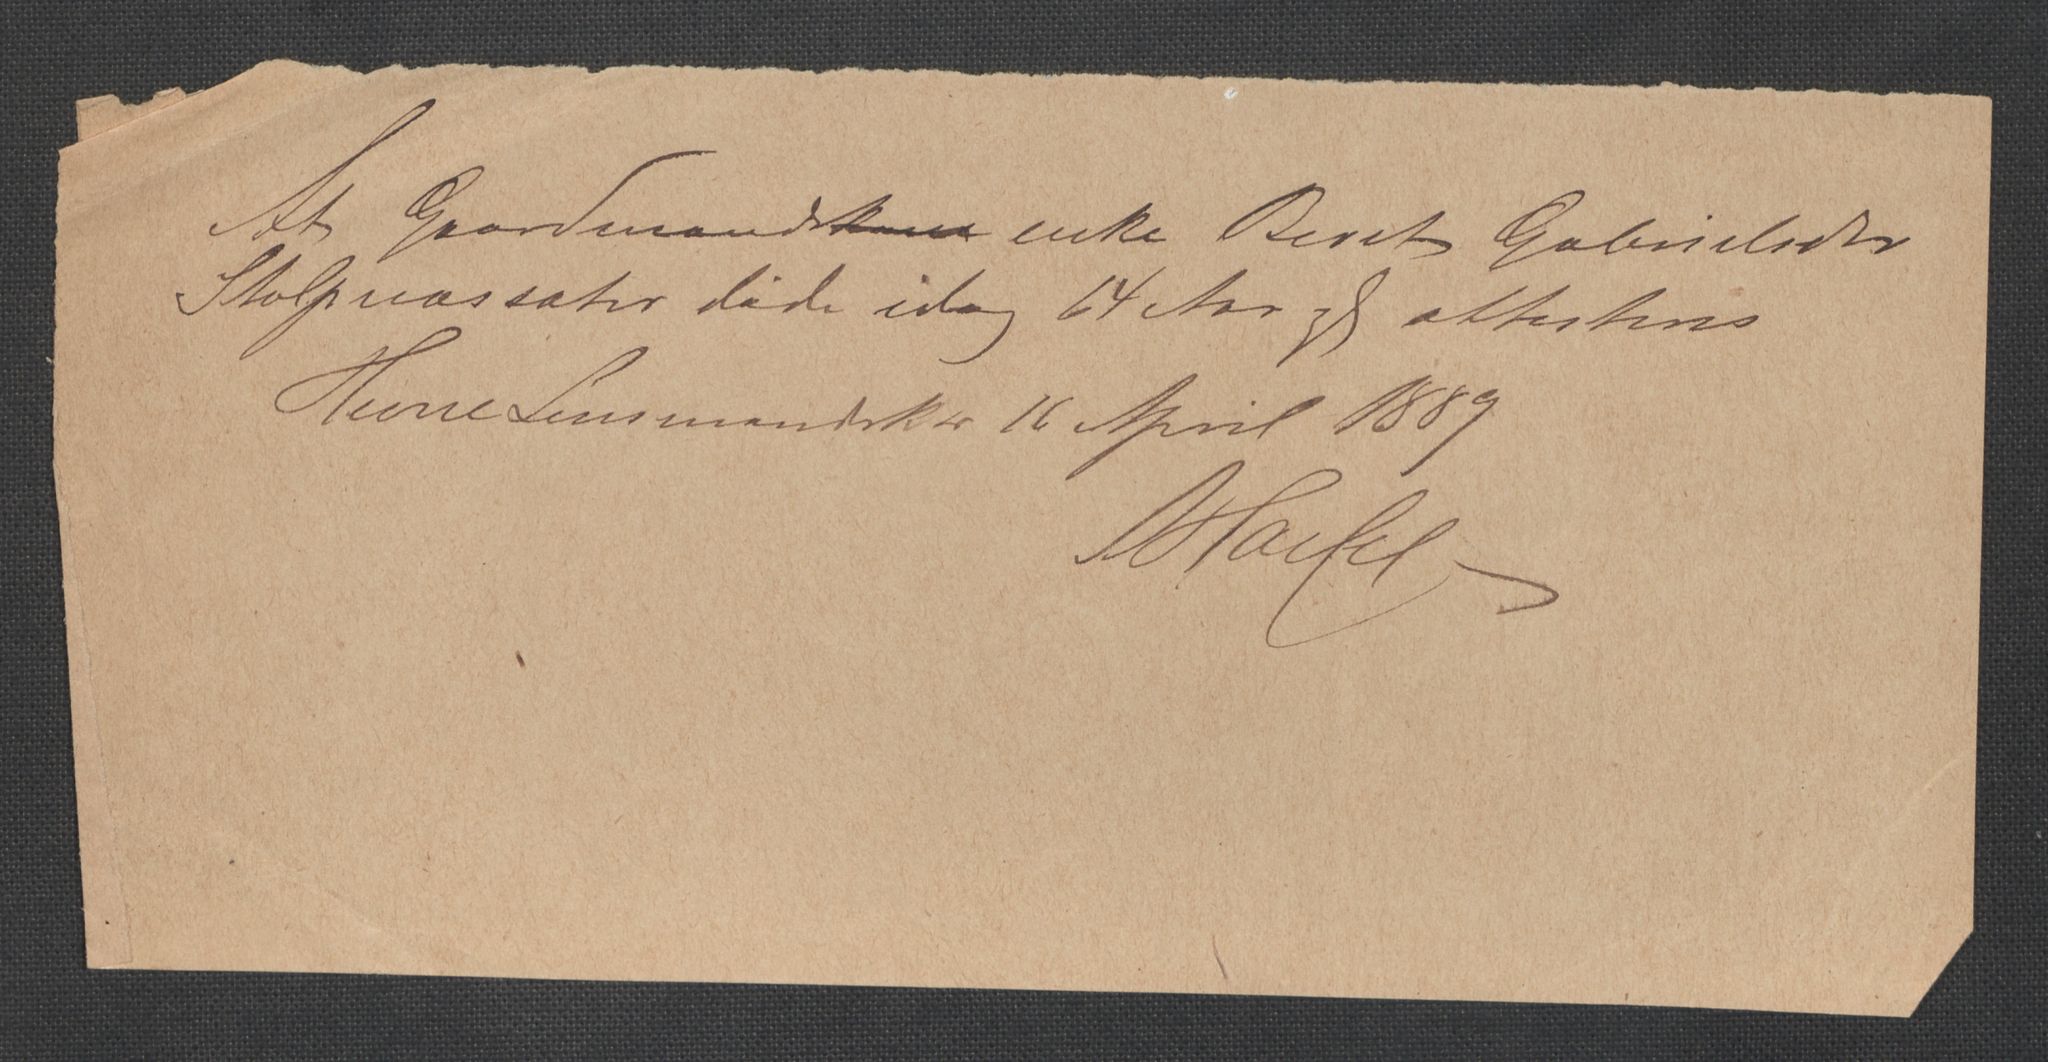 At Gaardmandskone enke Beret Gabrielsdtr
Stolpnessæter døde idag 64 Aar gl attesteres
Hevne Lensmandsktr 16 April 1889